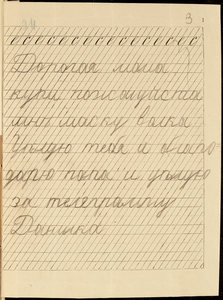 3
Дорогая мама
купи пожалуйста
мнѣ маску волка
Цѣлую тебя и благо
дарю папа и цѣлую
за телеграмму
Данилка